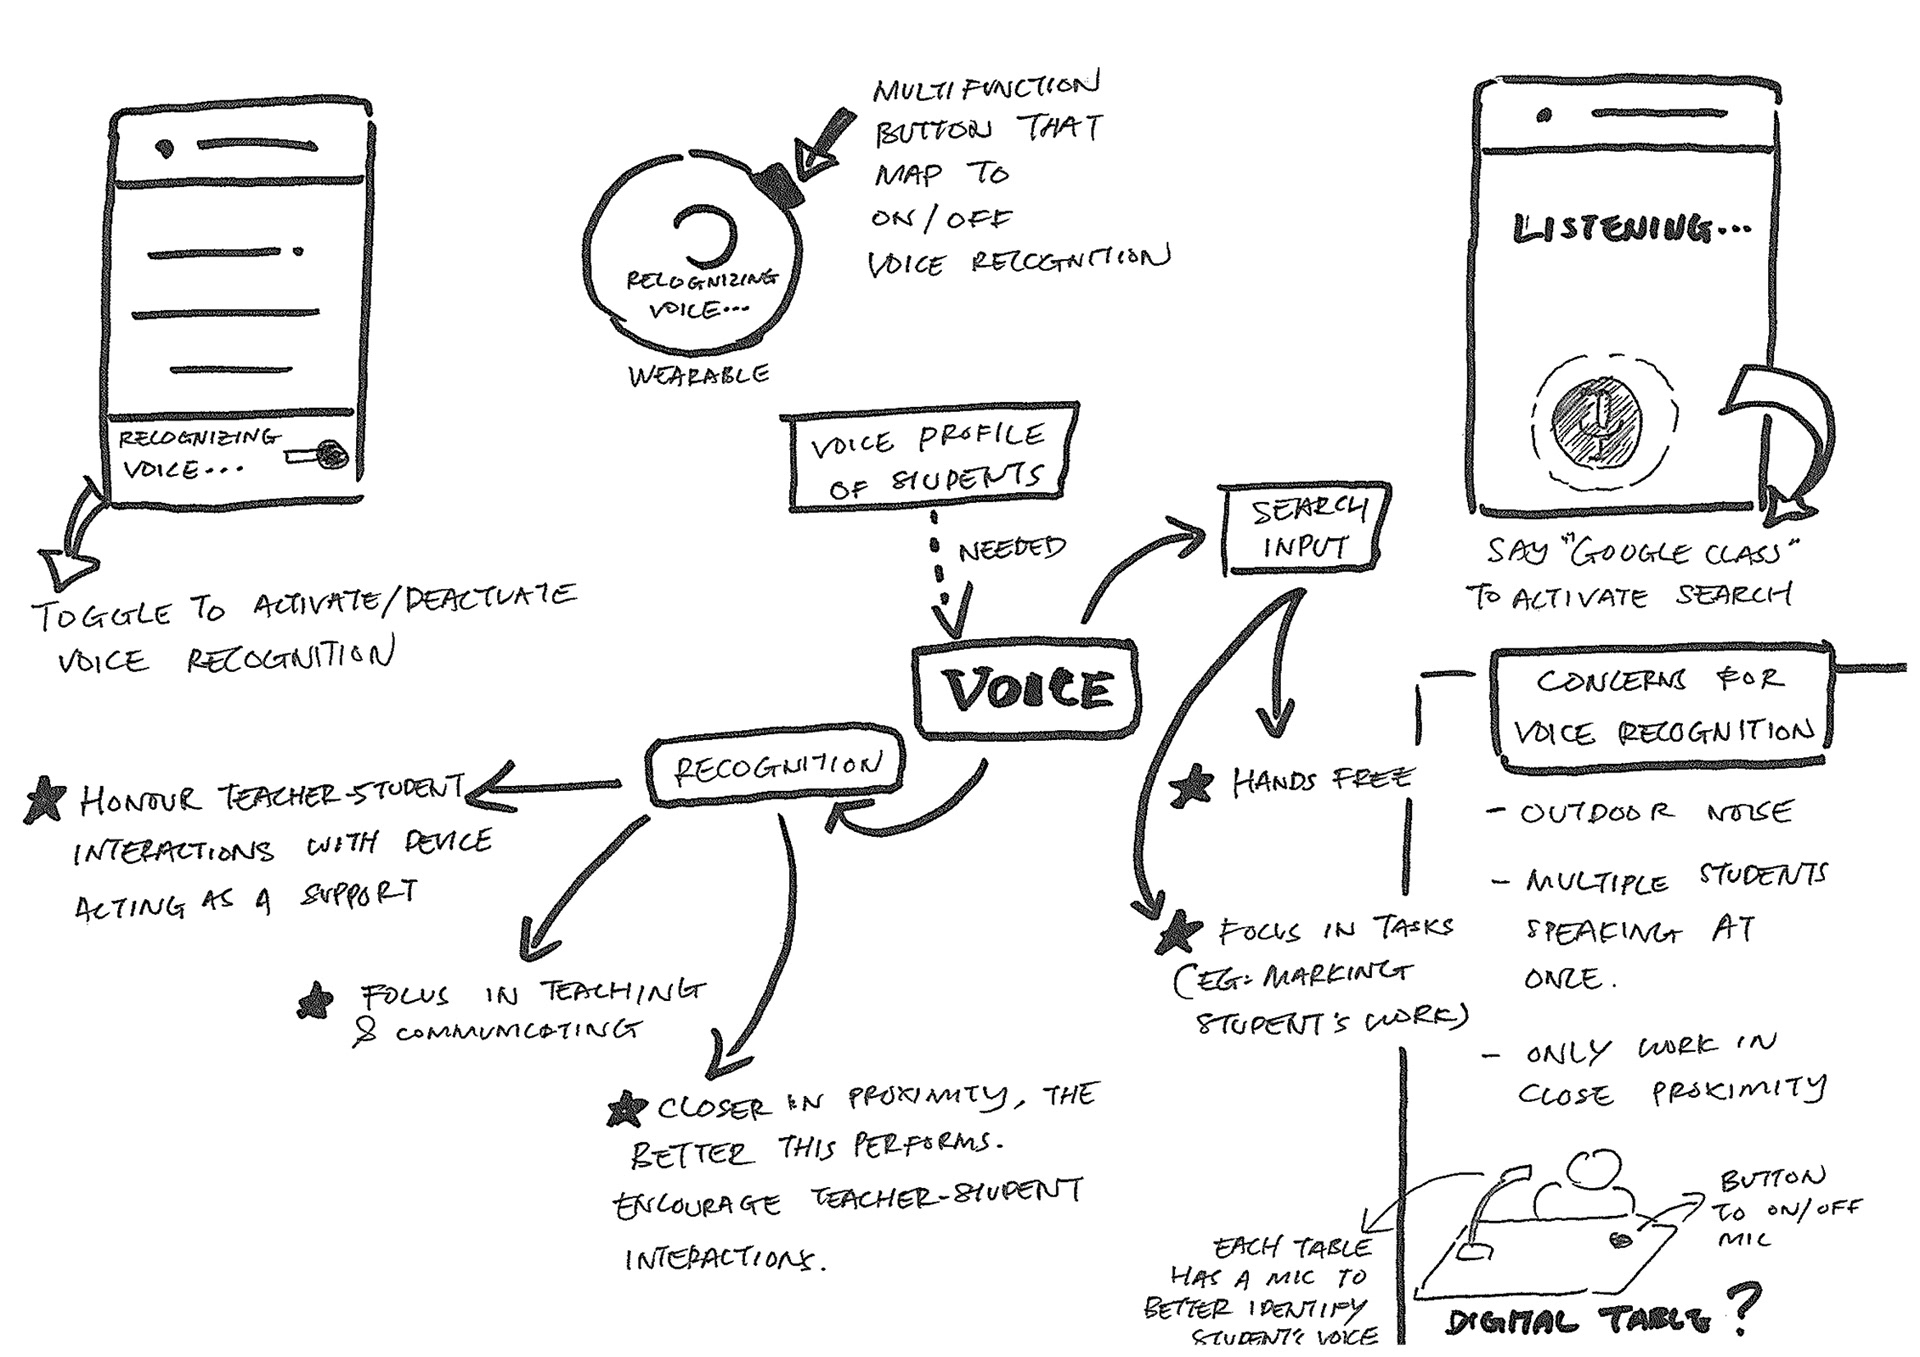 RECOGNIZING
VOICE...
TOGGLE TO ACTIVATE/DEACTIVATE
VOICE RECOGNITION
RECOGNIZING
VOICE...
WEARABLE
MULTIFUNCTION
BUTTON THAT
MAP TO
ON/OFF
VOICE RECOGNITION
LISTENING...
SAY "GOOGLE CLASS"
TO ACTIVATE SEARCH
VOICE PROFILE
OF STUDENTS
NEEDED
SEARCH
INPUT
VOICE
RECOGNITION
HONOUR TEACHER-STUDENT
INTERACTIONS WITH DEVICE
ACTING AS A SUPPORT
FOCUS IN TEACHING
& COMMUNICATING
CLOSER IN PROXIMITY, THE
BETTER THIS PERFORMS.
ENCOURAGE TEACHER-STUDENT
INTERACTIONS.
HANDS FREE
FOCUS IN TASKS
(EG: MARKING
STUDENT'S WORK)
CONCERNS FOR
VOICE RECOGNITION
- OUTDOOR NOISE
- MULTIPLE STUDENTS
SPEAKING AT
ONCE.
- ONLY WORK IN
CLOSE PROXIMITY
EACH TABLE
HAS A MIC TO
BETTER IDENTIFY
STUDENT'S VOICE
BUTTON
TO ON/OFF
MIC
DIGITAL TABLE?